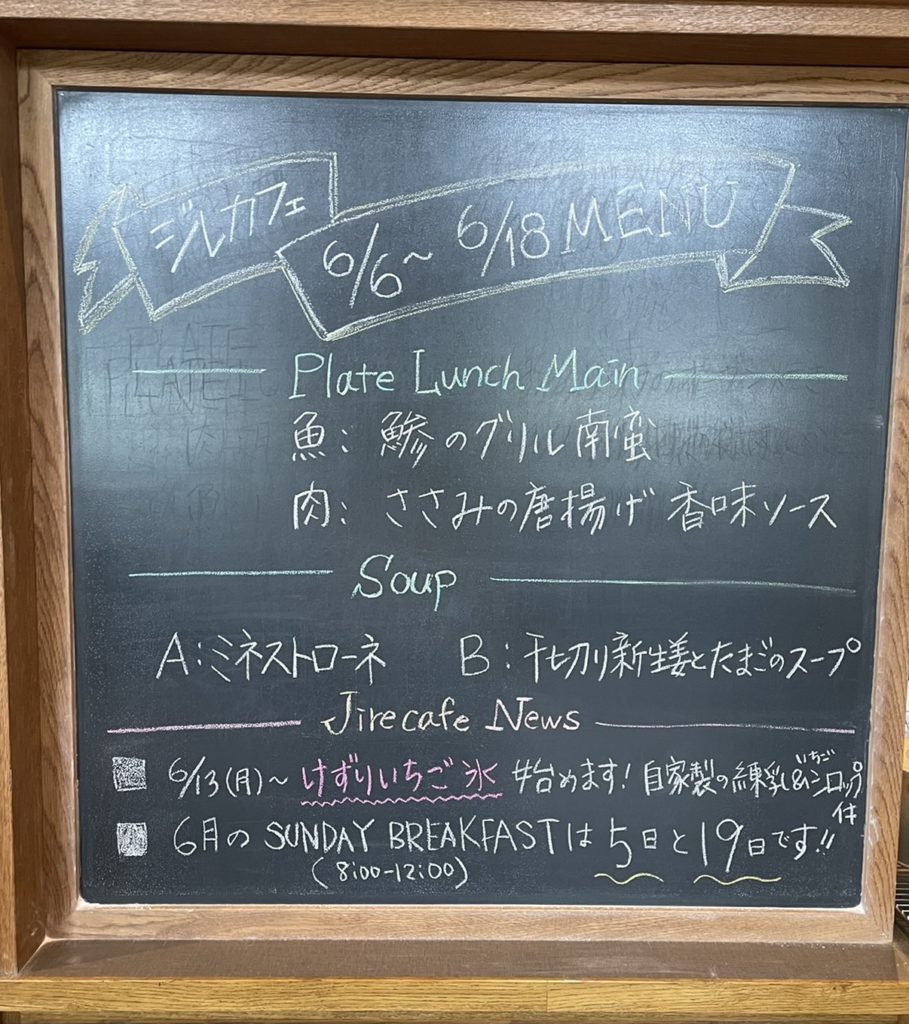 ジルカフェ 6/6~ 6/18 MENU
Plate Lunch Main
魚: 鯵のグリル南蛮
肉: ささみの唐揚げ 香味ソース
Soup
A:ミネストローネ B:千切り新生姜とたまごのスープ
Jirecafe News
6/13(月)~ けずりいちご氷 始めます! 自家製の練乳&いちごシロップ付
6月の SUNDAY BREAKFASTは 5日と19日です!!
(8:00-12:00)